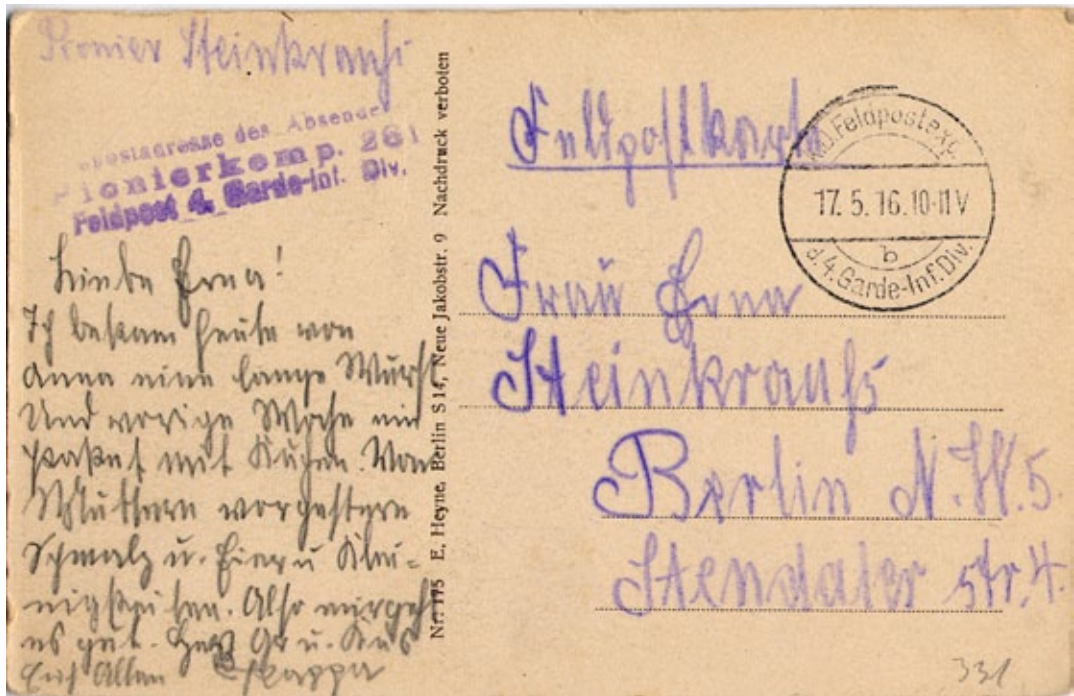 Pionier Steinkrauß
Feldpostadresse des Absenders
Pionierkomp. 261
Feldpost 4. Garde-Inf. Div.
Liebe Erna!
Ich bekam heute von
Anna eine lange Wurst
Und vorige Woche ein
Paket mit Kuchen. Von
Muttern vorgestern
Schmalz u. Eier u Klei-
nigkeiten. Also mir geht
es gut. Gr u. Kus
Euch Allen
Nr. 175 E. Heyne, Berlin S 14, Neue Jakobstr. 9 Nachdruck verboten
Feldpostkarte
Feldpostexp.
17. 5. 16. 10-11 V
b
d. 4. Garde-Inf. Div.
Frau Erna
Steinkrauß
Berlin N.W. 5.
Stendaler Str. 4.
331